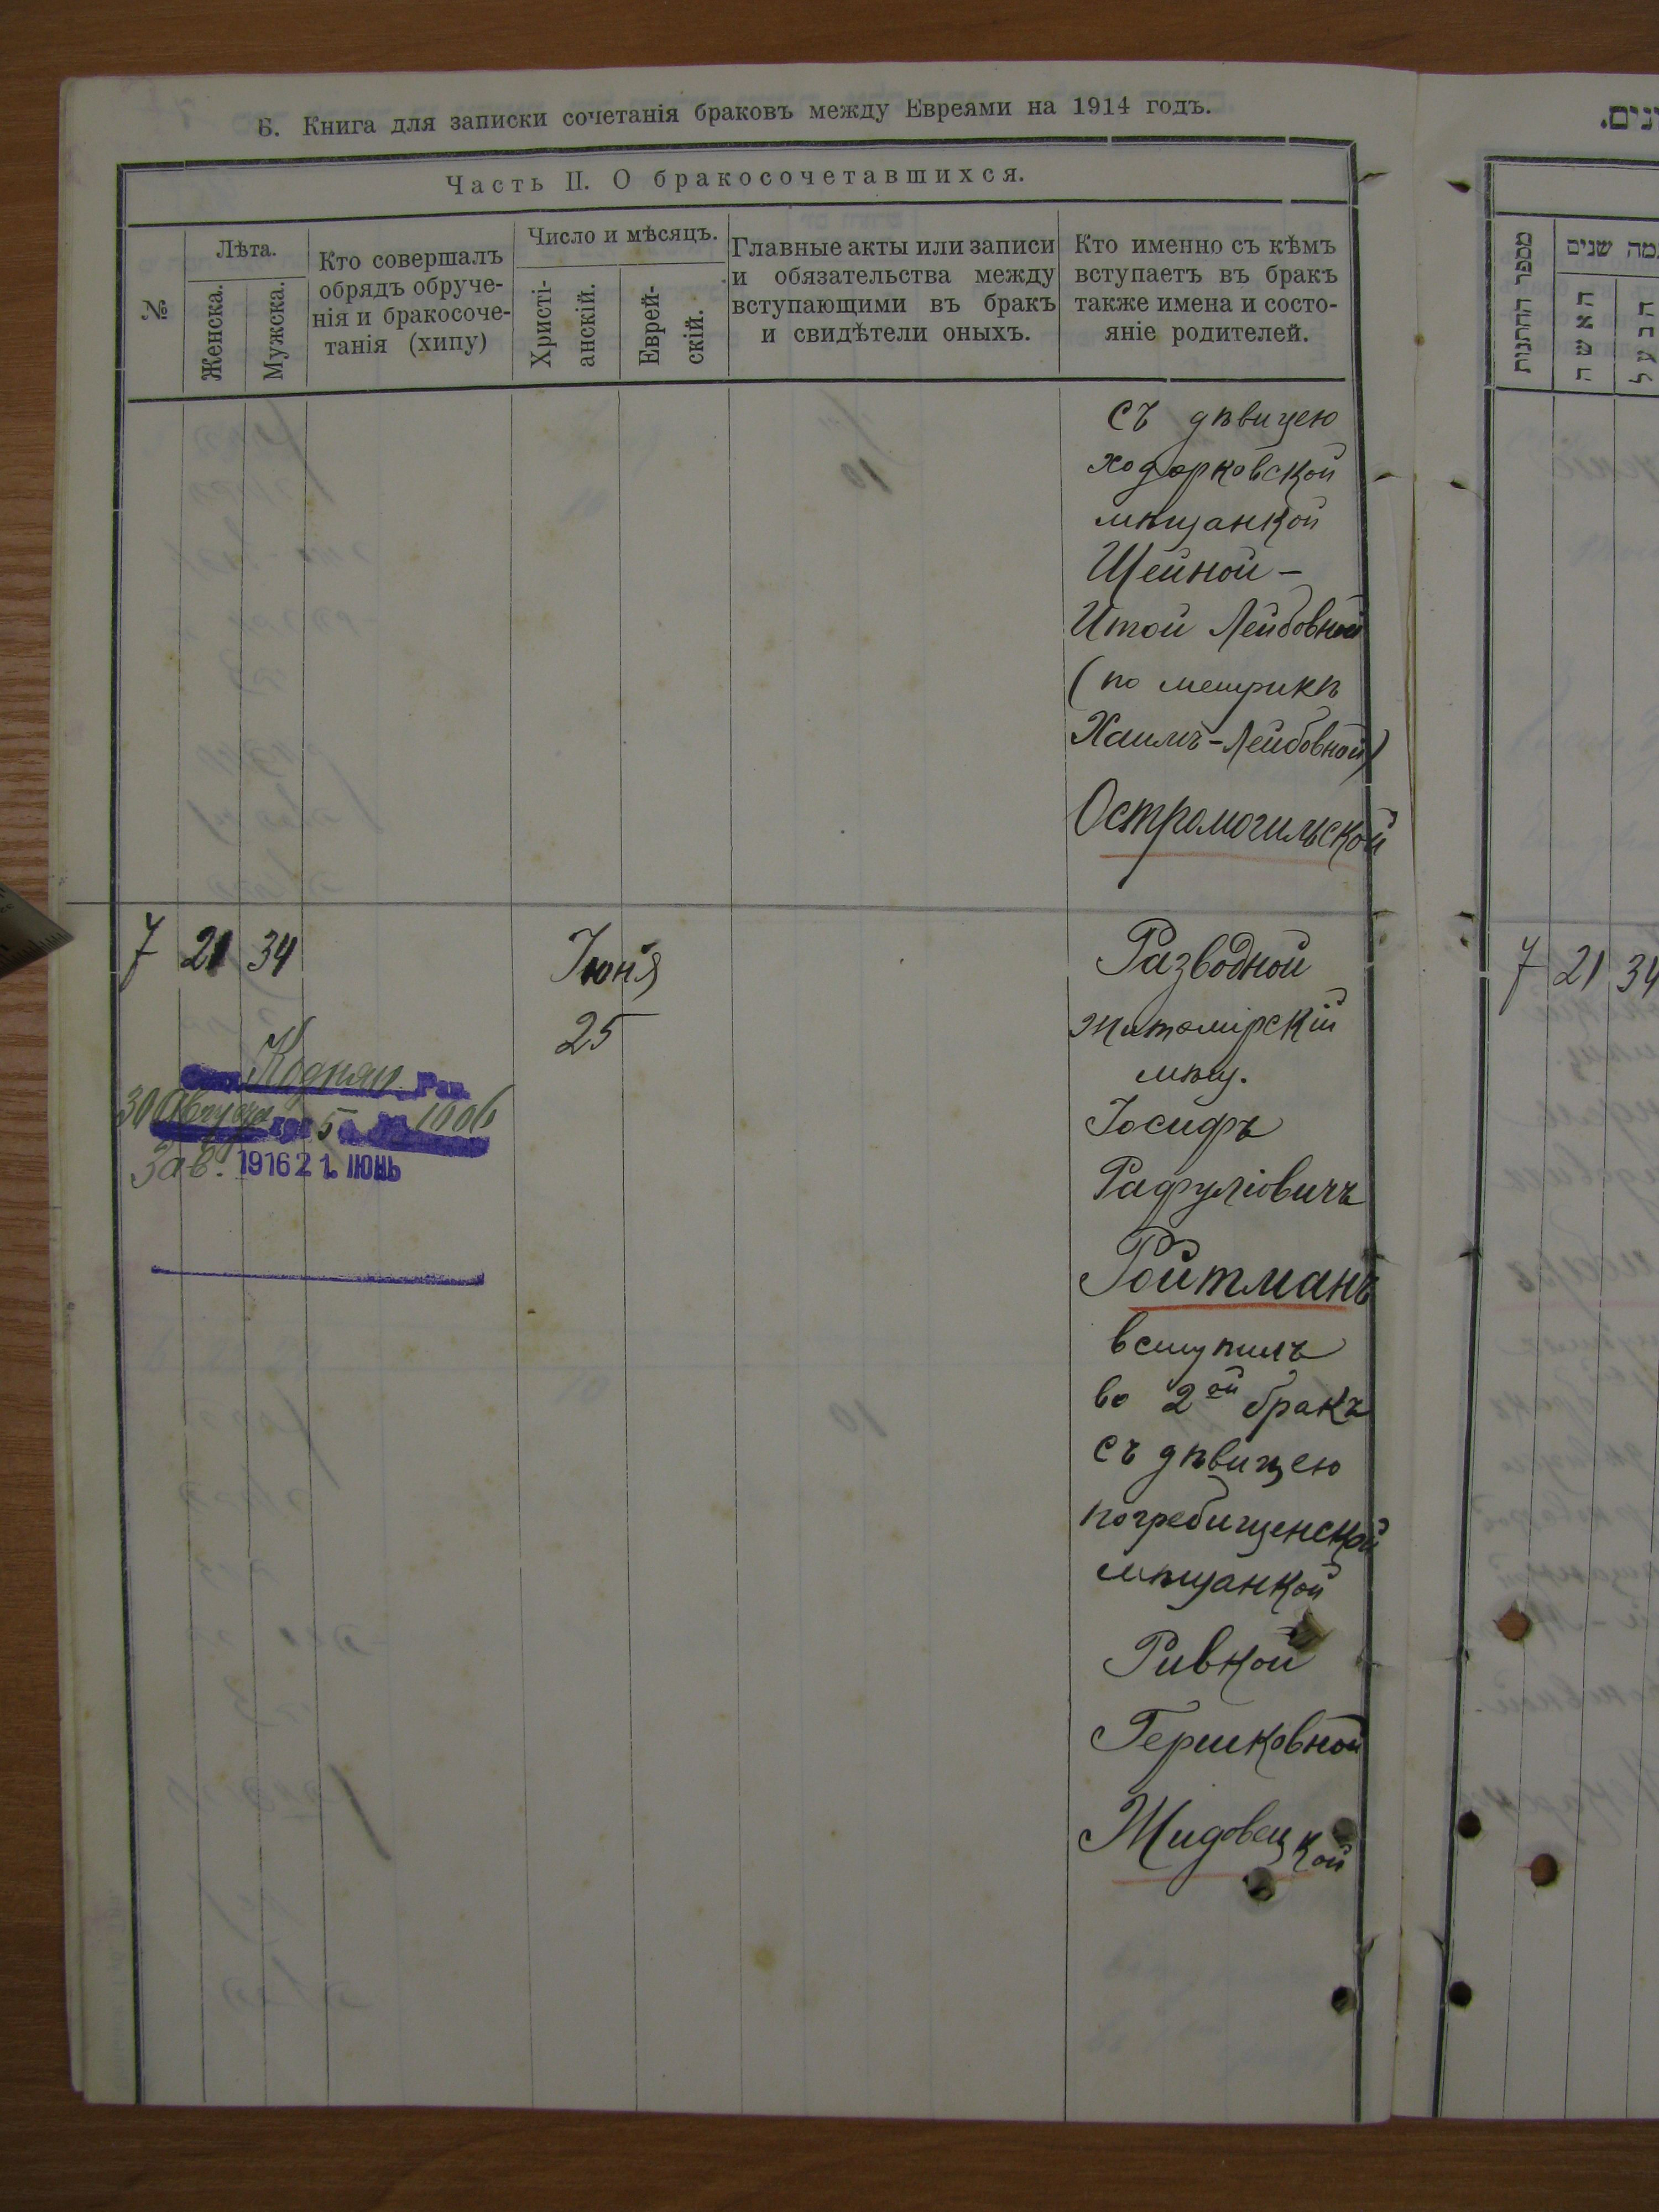 Б. Книга для записки сочетанія браковъ между Евреями на 1914 годъ.
Часть II. О бракосочетавшихся.
№
Лѣта.
Женска.
Мужска.
Кто совершалъ
обрядъ обруче-
нія и бракосоче-
танія (хипу)
Число и мѣсяцъ.
Христі-
анскій.
Еврей-
скій.
Главные акты или записи
и обязательства между
вступающими въ бракъ
и свидѣтели оныхъ.
Кто именно съ кѣмъ
вступаетъ въ бракъ
также имена и состо-
яніе родителей.
съ дѣвицею
ходорковской
мѣщанкой
Шейной-
Итой Лейбовной
(по метрикѣ
Хаимъ-Лейбовной)
Остромогильской
7 21 34
Іюня
25
Разводной
житомірскій
мѣщ.
Іосифъ
Рафуліовичъ
Ройтманъ
вступилъ
во 2ой бракъ
съ дѣвицею
погребищенской
мѣщанкой
Ривкой
Гершковной
Жидовецкой
30 Августа 5 1006
Зав. 1916 21. ІЮНЬ
מספר החתנות
שנים
האשה
הבעל
7 21 34